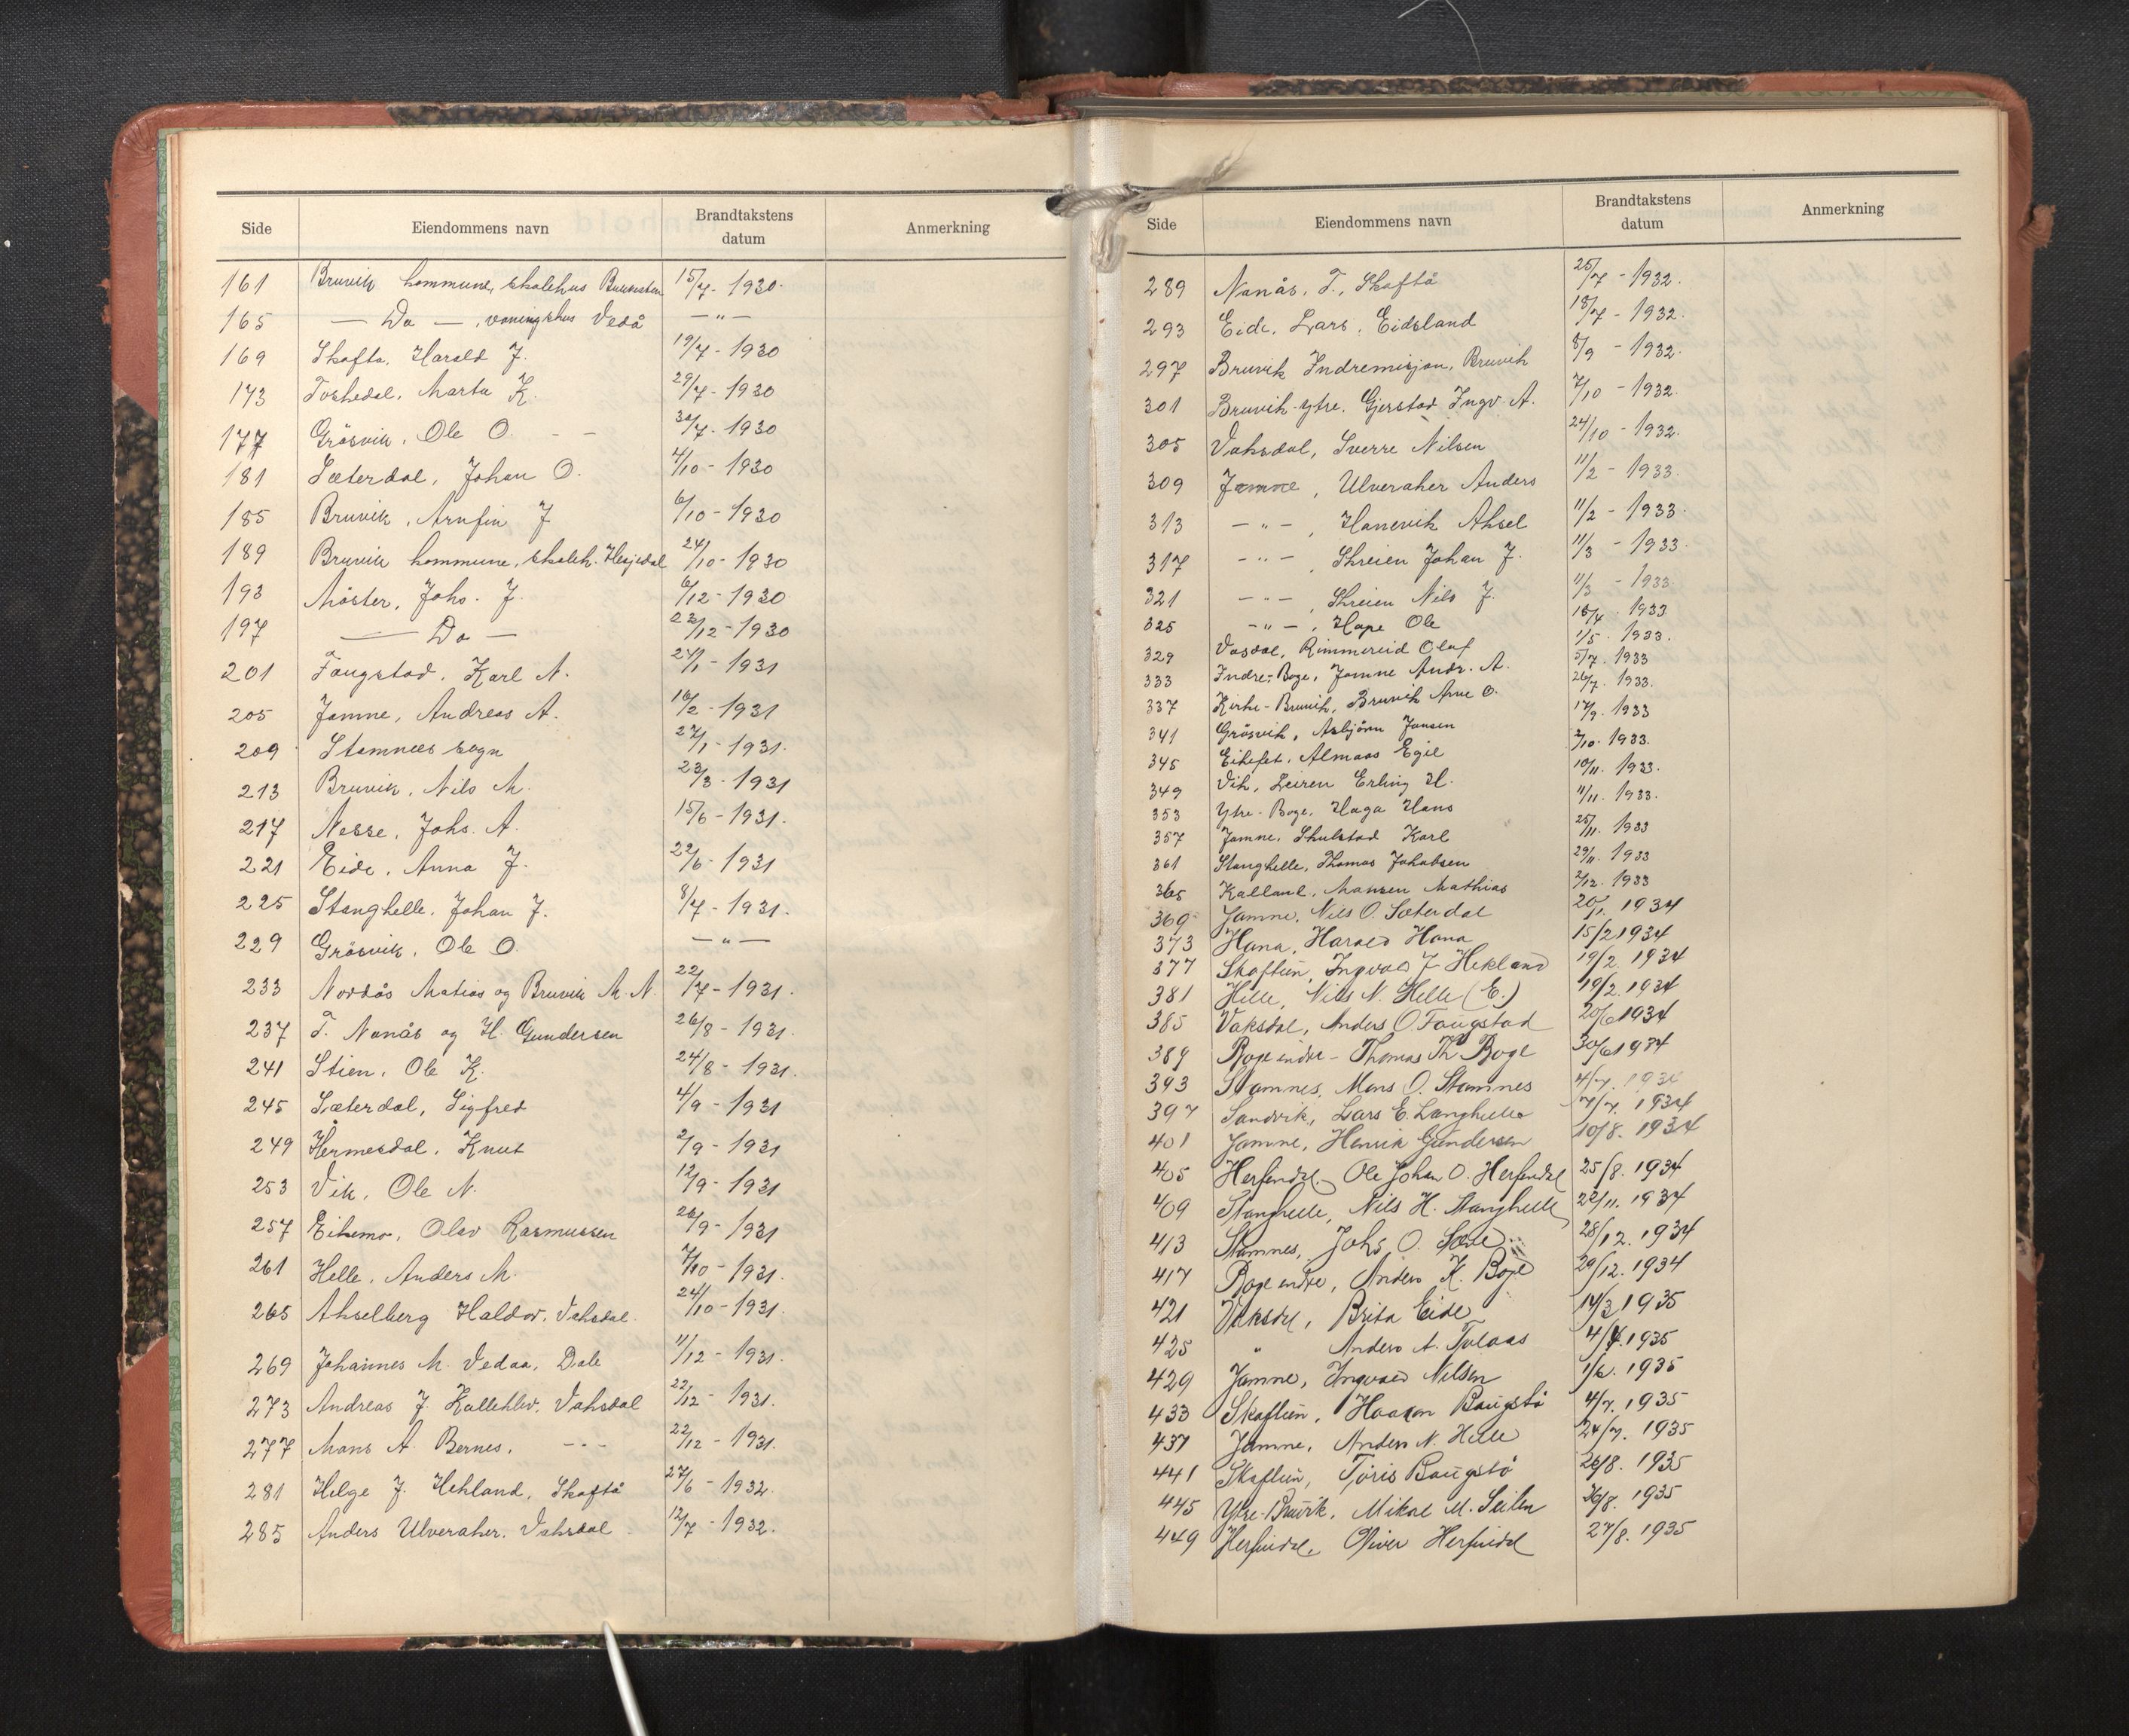 Side Eiendommens navn Brandtakstens datum Anmerkning
161 Bruvik kommune, skolehus 15/7 - 1930
165 — Do — , vaningshus Vedå — " —
169 Skafta, Harald J. 19/7 - 1930
173 Toskedal, Marta K. 29/7 - 1930
177 Gråsvik, Ole O. - - 30/7 - 1930
181 Sæterdal, Johan O. 4/10 - 1930
185 Bruvik, Arnfin J 6/10 - 1930
189 Bruvik kommune, skoleh. Hesjedal 24/10 - 1930
193 Møster, Johs. J. 6/12 - 1930
197 — Do — 22/12 - 1930
201 Faugstad, Karl N. 24/1 - 1931
205 Jamne, Andreas A. 16/2 - 1931
209 Stamnes sogn 27/1 - 1931.
213 Bruvik, Nils M. 23/3 - 1931
217 Nesse, Johs. A. 15/6 - 1931.
221 Eide, Anna J. 22/6 - 1931
225 Stanghelle, Johan J. 8/7 - 1931.
229 Gråsvik, Ole O. — " —
233 Nordås Matias og Bruvik M. N. 22/7 - 1931.
237 T. Nanås og H. Gundersen 26/8 - 1931.
241 Stien, Ole K. 24/8 - 1931.
245 Sæterdal, Sigfred 4/9 - 1931
249 Hermesdal, Knut 2/9 - 1931
253 Vik, Ole N. 12/9 - 1931
257 Eikemo, Olav Rasmussen 26/9 - 1931
261 Helle, Anders M. 7/10 - 1931.
265 Akselberg Haldor, Vaksdal. 24/10 - 1931.
269 Johannes M. Vedaa, Dale 11/12 - 1931.
273 Andreas J. Kalleklev, Vaksdal 22/12 - 1931.
277 Mons A. Bernes, - - - 22/12 - 1931.
281 Helge J. Hekland, Skaftå 27/6 - 1932.
285 Anders Ulveraker, Vaksdal 12/7 - 1932.
Side Eiendommens navn Brandtakstens datum Anmerkning
289 Nanås, T., Skaftå 25/7 - 1932.
293 Eide, Lars, Eidsland 18/7 - 1932.
297 Bruvik Indremisjon, Bruvik 8/9 - 1932.
301 Bruvik-ytre, Gjerstad Ingv. A. 7/10 - 1932.
305 Vaksdal, Sverre Nilsen 24/10 - 1932.
309 Jamne, Ulveraker Anders 11/2 - 1933.
313 - " - , Hanevik Aksel 11/2 - 1933.
317 - " - , Skreien Johan J. 11/3 - 1933.
321 - " - , Skreien Nils J. 11/3 - 1933.
325 - " - , Hope Ole 18/4 . 1933
329 Vasdal, Rimmereid Olaf 1/5 . 1933.
333 Indre-Boge, Jamne Andr. A. 5/7. 1933
337 Kirke-Bruvik, Bruvik Arne O. 26/7. 1933.
341 Gråsvik, Asbjørn Jansen 17/9. 1933
345 Eikefet, Almaas Egil 2/10. 1933.
349 Vik, Leiren Erling H. 10/11. 1933.
353 Ytre-Boge, Haga Hans 11/11. 1933.
357 Jamne, Skulstad Karl 25/11. 1933
361 Stanghelle, Thomas Jakobsen 29/11. 1933
365 Kalland, Monsen Mathias 2/12. 1933
369 Jamne, Nils O. Sæterdal 20/1. 1934
373 Hana, Harald Hana 15/2 1934
377 Skaftun, Ingvald J. Hekland 19/2. 1934
381 Helle, Nils N. Helle (E.) 19/2. 1934
385 Vaksdal, Anders O Faugstad 20/6 1934
389 Boge indre - Thomas Th. Boge 30/6 1934
393 Stamnes, Mons O. Stamnes 4/7. 1934
397 Sandvik, Lars E. Langhelle 7/7. 1934
401 Jamne, Henrik Gundersen 10/8. 1934
405 Herfindal, Ole Johan O. Herfindal 25/8. 1934
409 Stanghelle, Nils H. Stanghelle 22/11. 1934
413 Stamnes, Johs O. 28/12. 1934
417 Boge indre, Anders K. Boge 29/12. 1934
421 Vaksdal, Brita Eide 14/3 1935
425 " Anders A. 4/4. 1935
429 Jamne, Ingvald Nilsen 1/6. 1935
433 Skaftun, Haakon Baugstø 4/7. 1935
437 Jamne, Anders N. Helle 24/7. 1935
441 Skaftun, Baugstø 26/8. 1935
445 Ytre-Bruvik, Mikal M. 26/8. 1935
449 Herfindal, Oliver Herfindal 27/8. 1935